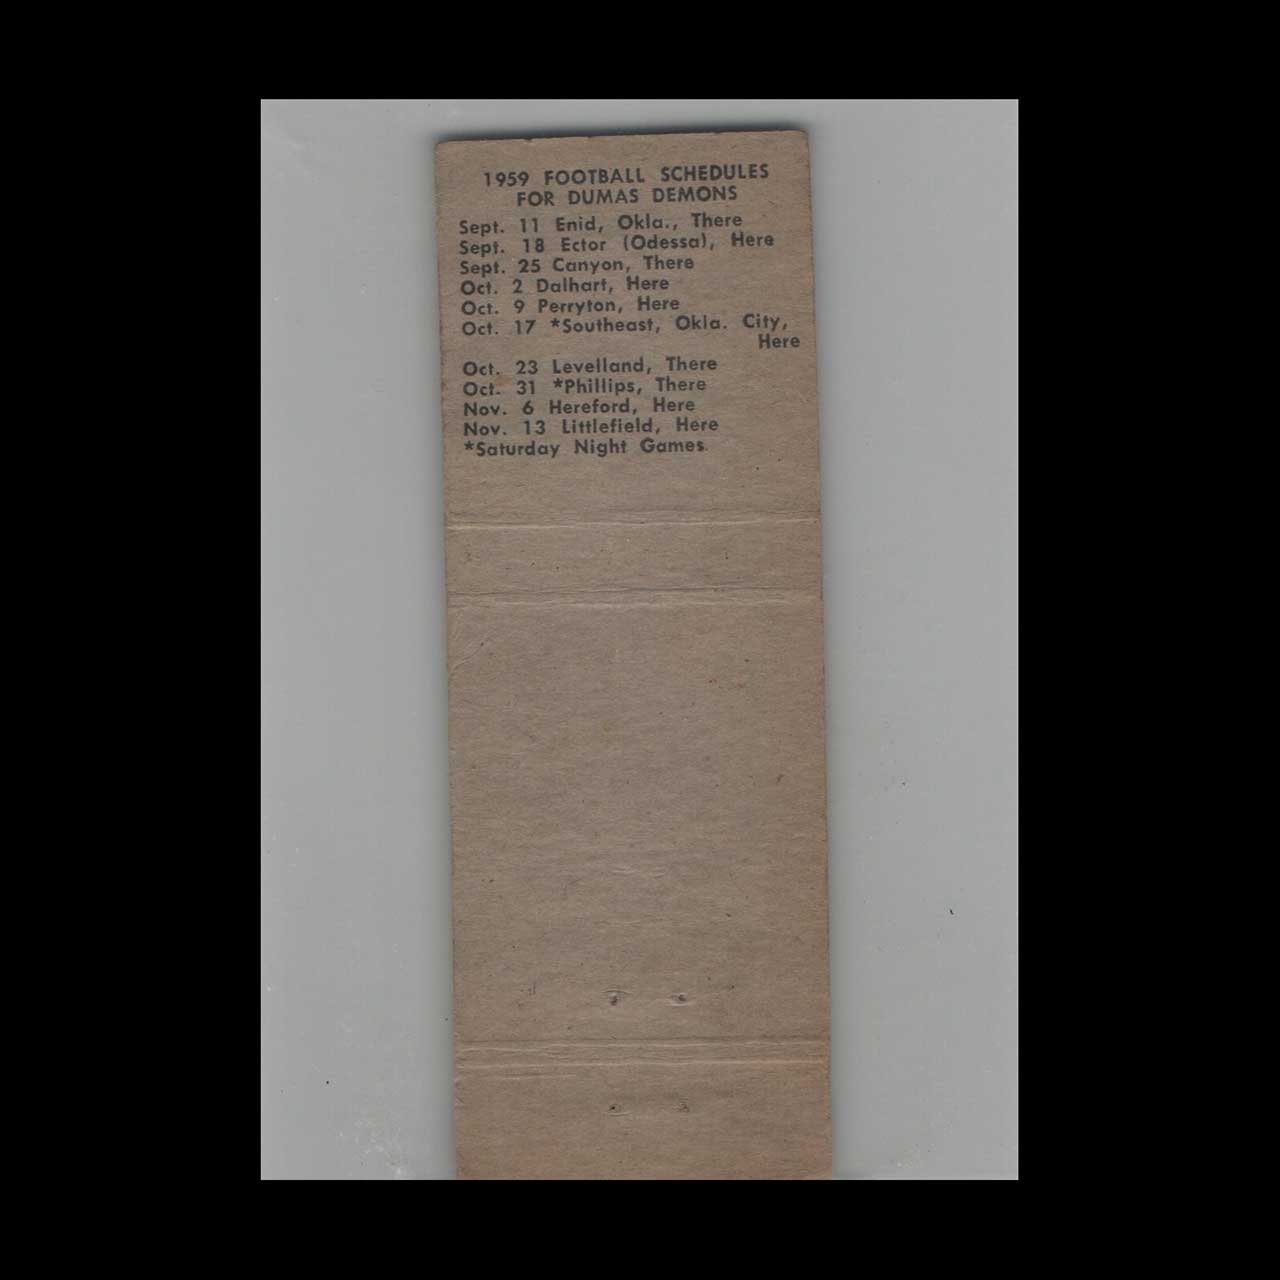 1959 FOOTBALL SCHEDULES
FOR DUMAS DEMONS
Sept. 11 Enid, Okla., There
Sept. 18 Ector (Odessa), Here
Sept. 25 Canyon, There
Oct. 2 Dalhart, Here
Oct. 9 Perryton, Here
Oct. 17 *Southeast, Okla. City,
Here
Oct. 23 Levelland, There
Oct. 31 *Phillips, There
Nov. 6 Hereford, Here
Nov. 13 Littlefield, Here
*Saturday Night Games